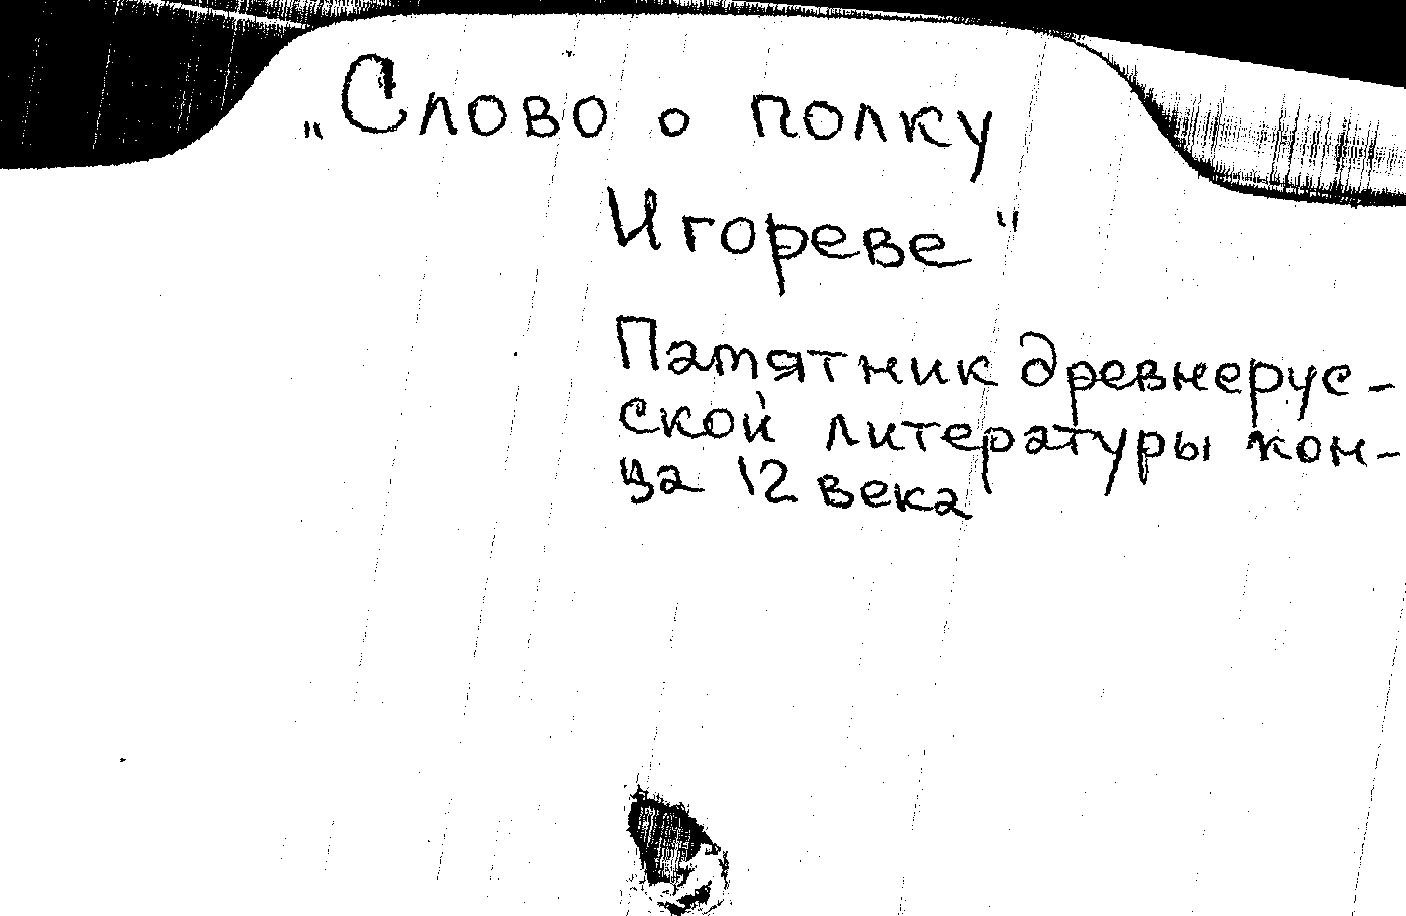 „Слово о полку
Игореве"
Памятник древнерус-
ской литературы кон-
ца 12 века